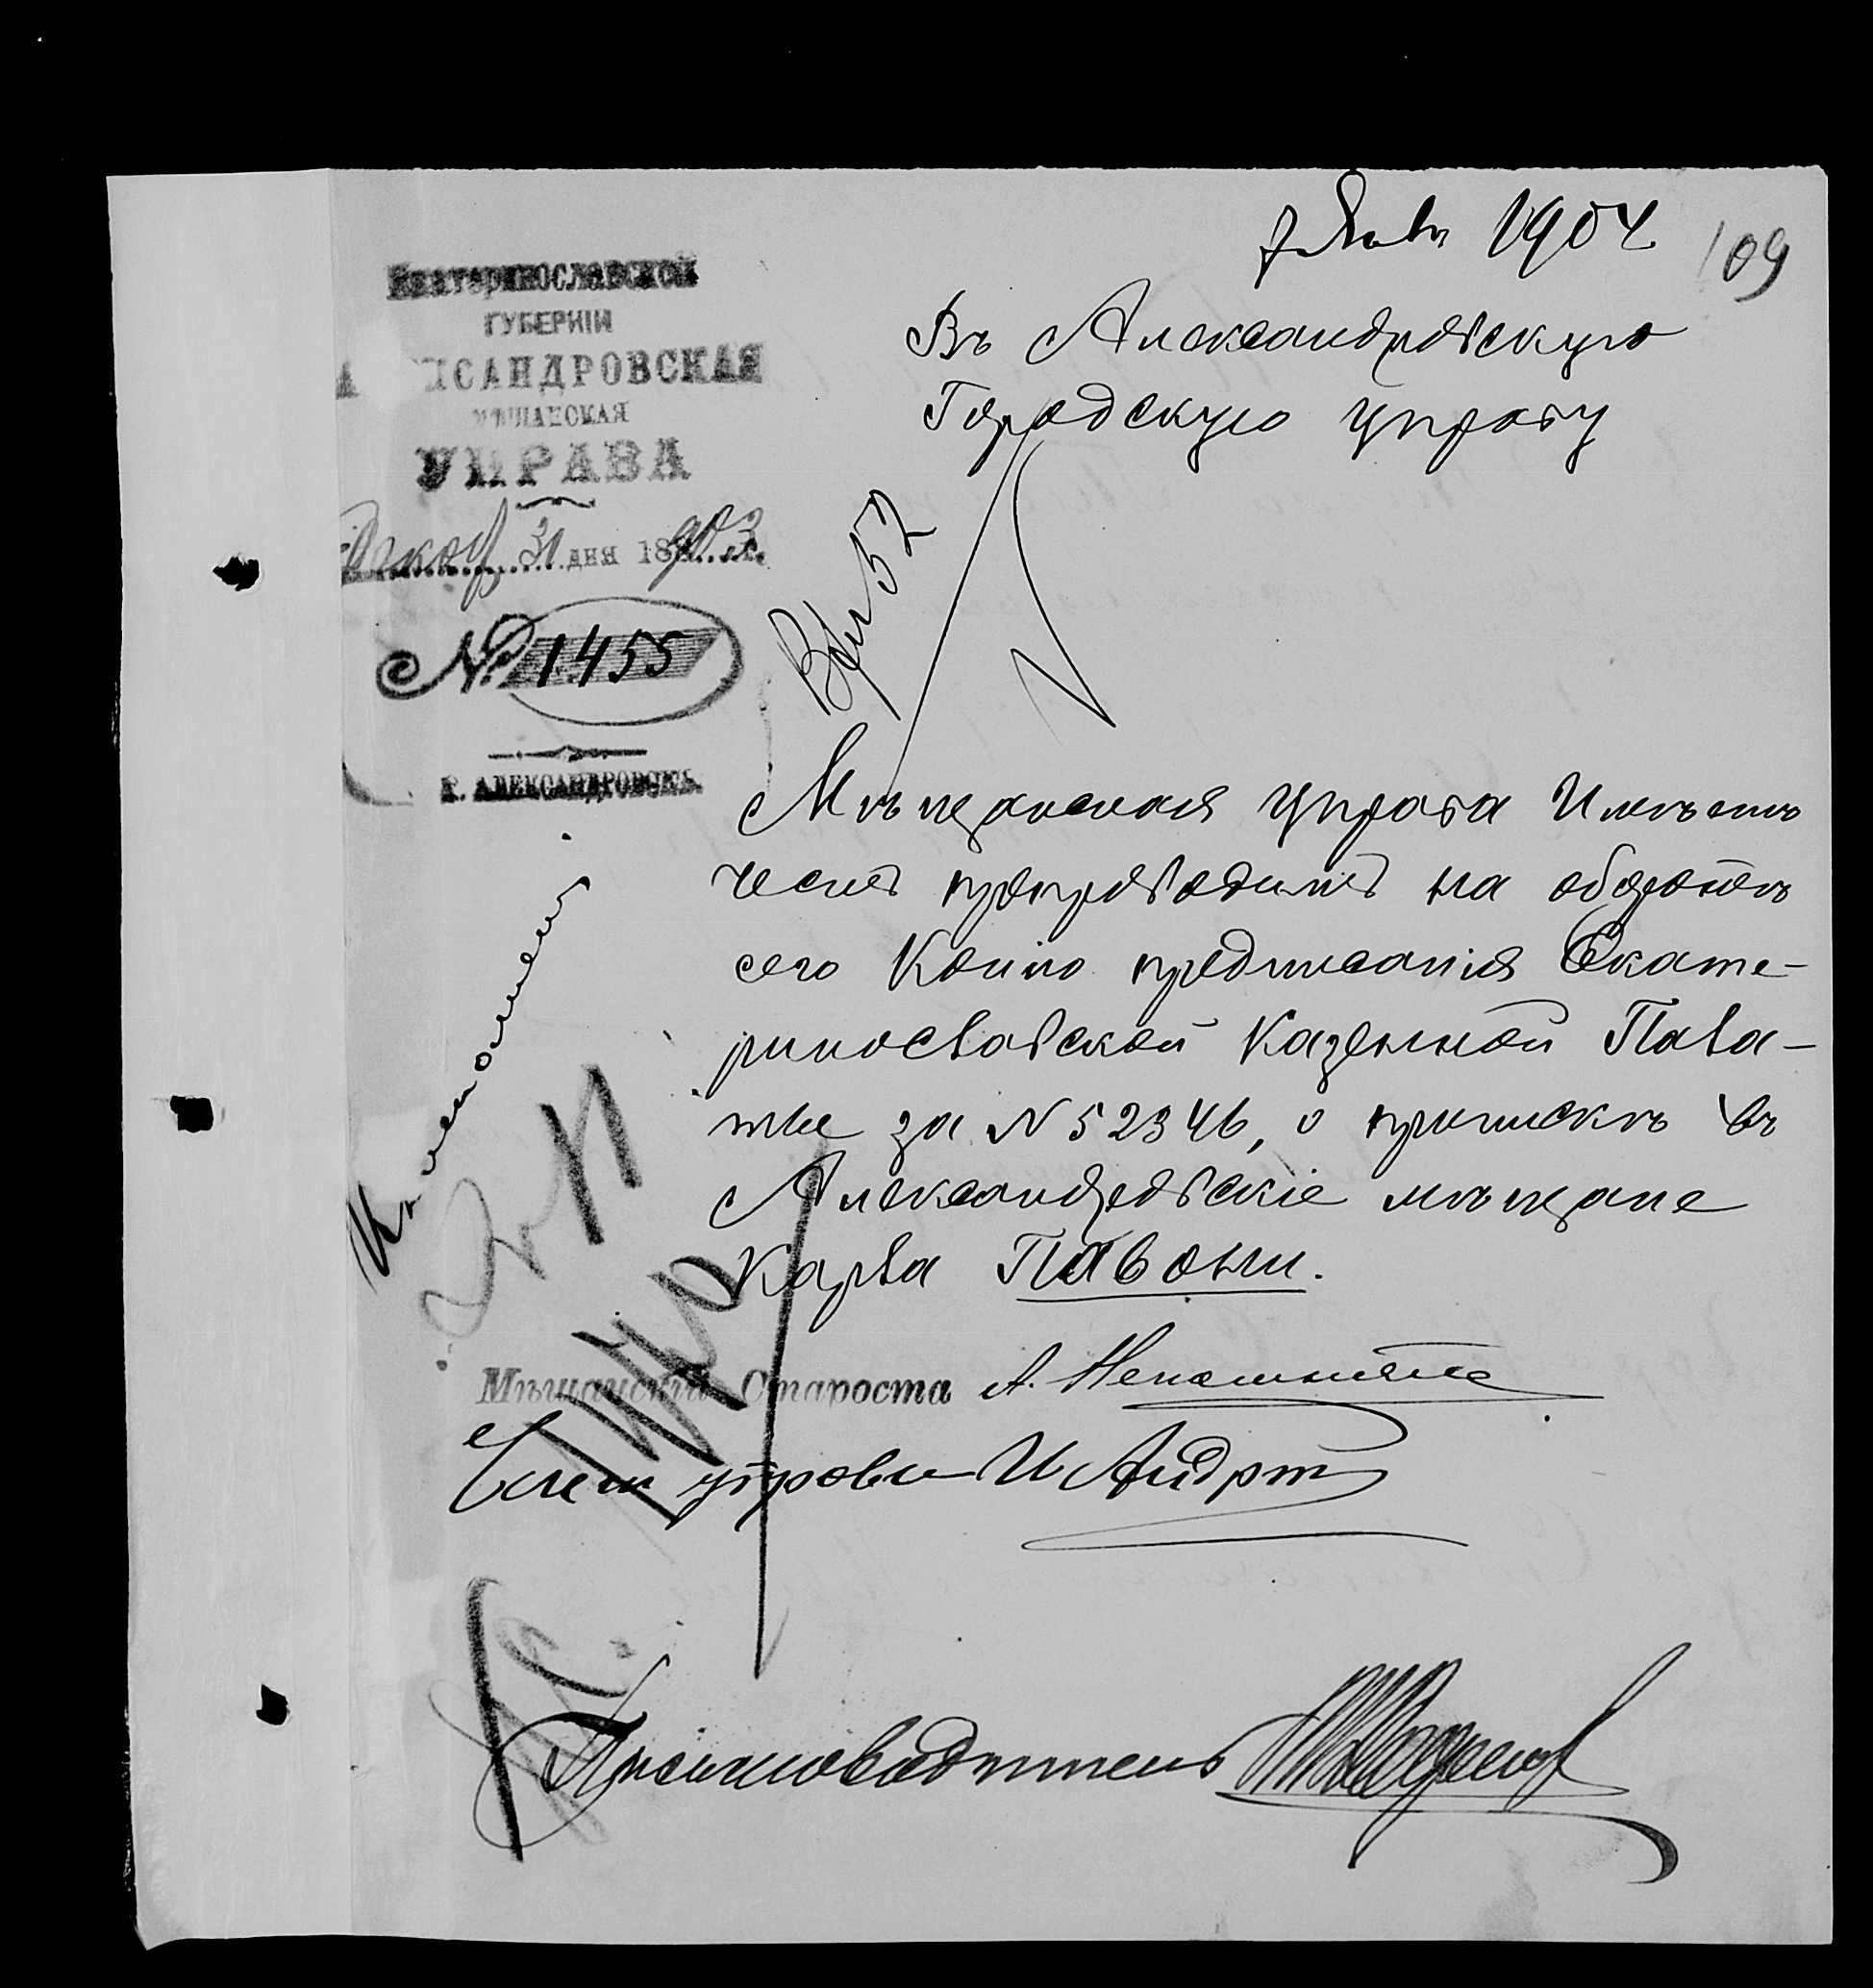 7 Янв 1904
109
Екатеринославской
ГУБЕРНІИ
АЛЕКСАНДРОВСКАЯ
МѢЩАНСКАЯ
УПРАВА
Декаб 31 дня 1903 г.
№ 1455
Г. АЛЕКСАНДРОВСКЪ.
Въ Александровскую
Городскую управу
52
Мѣщанская управа Имѣетъ
честь препроводить на оборотѣ
сего Копію предписанія Екате-
ринославской Казенной Пала-
ты за № 52346, о припискѣ въ
Александровскіе мѣщане
Карла Павони.
Мѣщанскій Староста А.
Член управы И
Письмоводитель